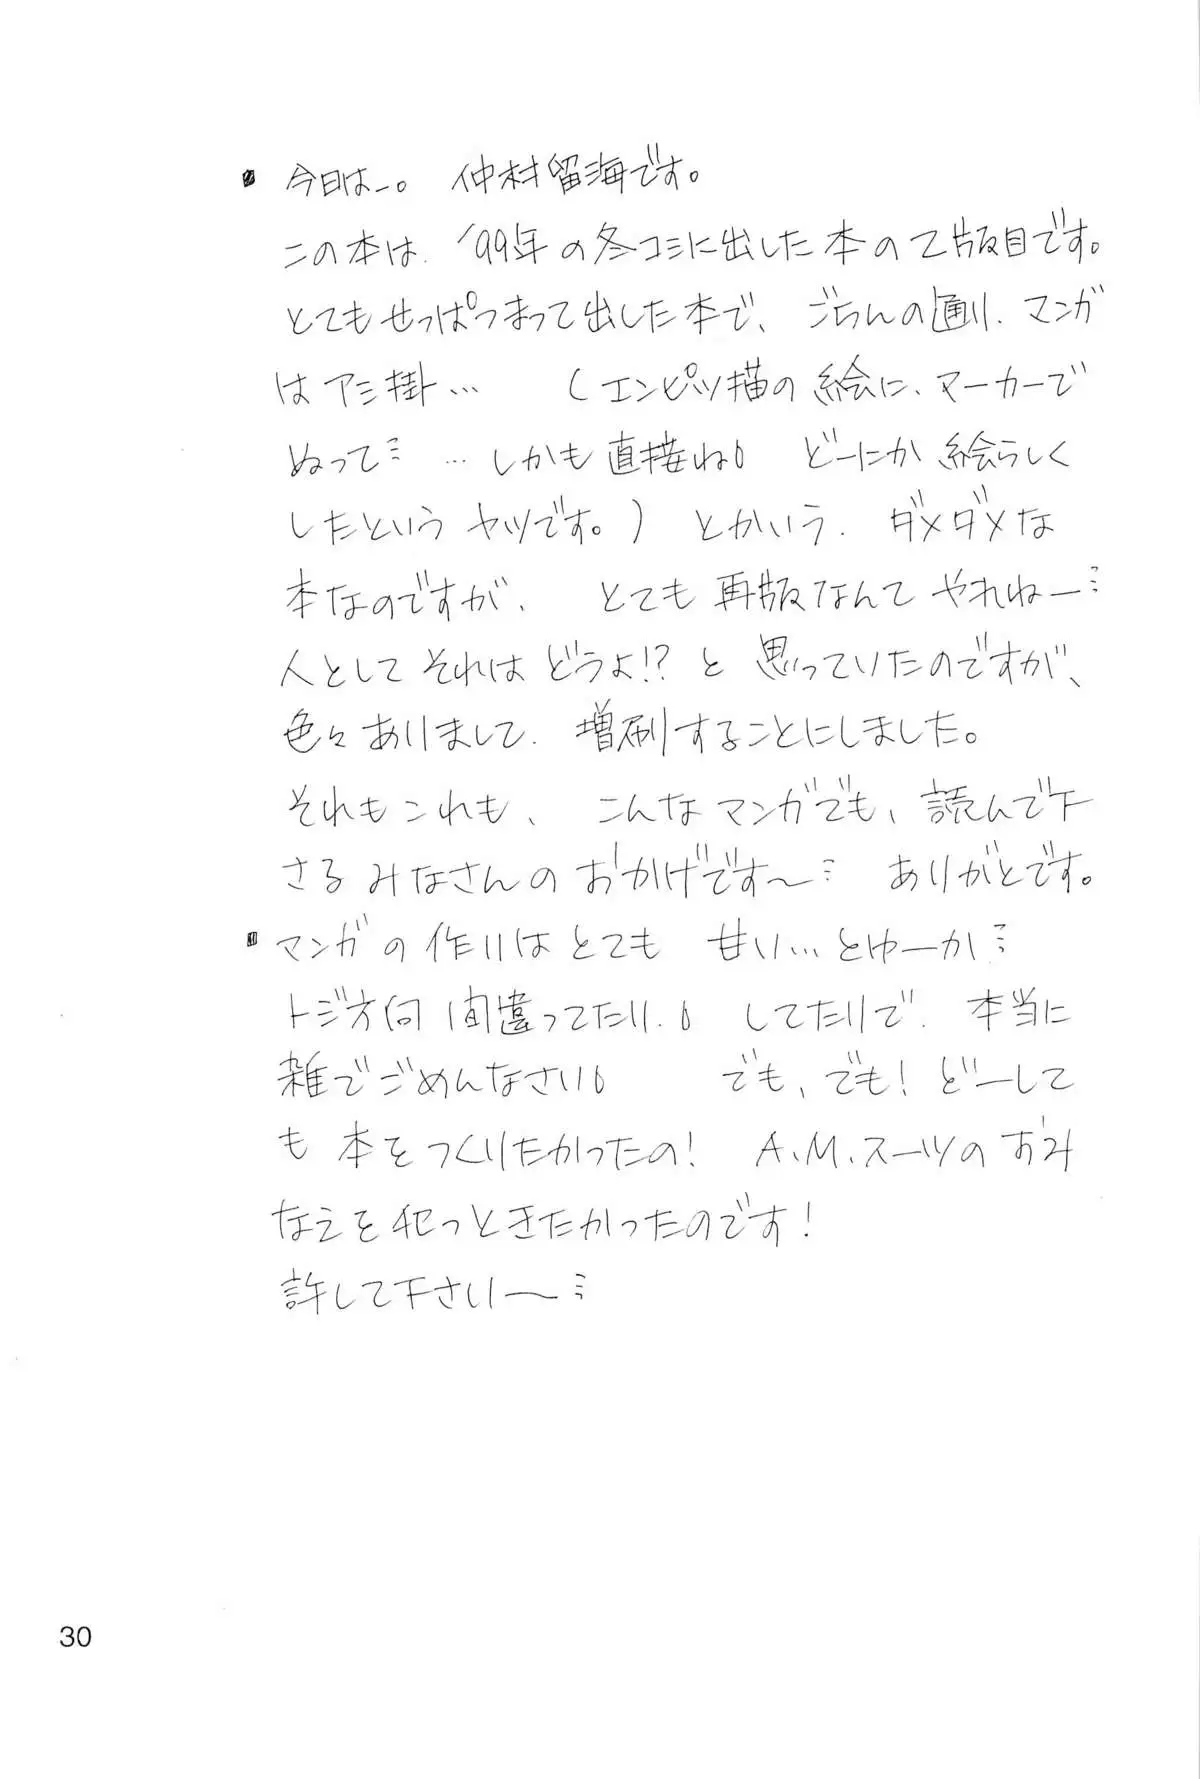 ・今日はー。 仲村留海です。
この本は、'99年の冬コミに出した本の2版目です。
とてもせっぱつまって出した本で、ごらんの通り、マンガ
はアミ掛… (エンピツ描の絵に、マーカーで
ぬって… …しかも直接ね。 どーにか絵らしく
したというヤツです。) とかいう、ダメダメな
本なのですが、 とても再版なんてやれねー…
人としてそれはどうよ!?と思っていたのですが、
色々ありまして、増刷することにしました。
それもこれも、 こんなマンガでも、読んで下
さるみなさんのおかげです〜… ありがとです。
・マンガの作りはとても 甘い…とゆーか…
トジ方向間違ってたり、 してたりで、本当に
雑でごめんなさい。 でも、でも!どーして
も本をつくりたかったの! A.M.スーツのおみ
なえを犯っときたかったのです!
許して下さい〜…
30